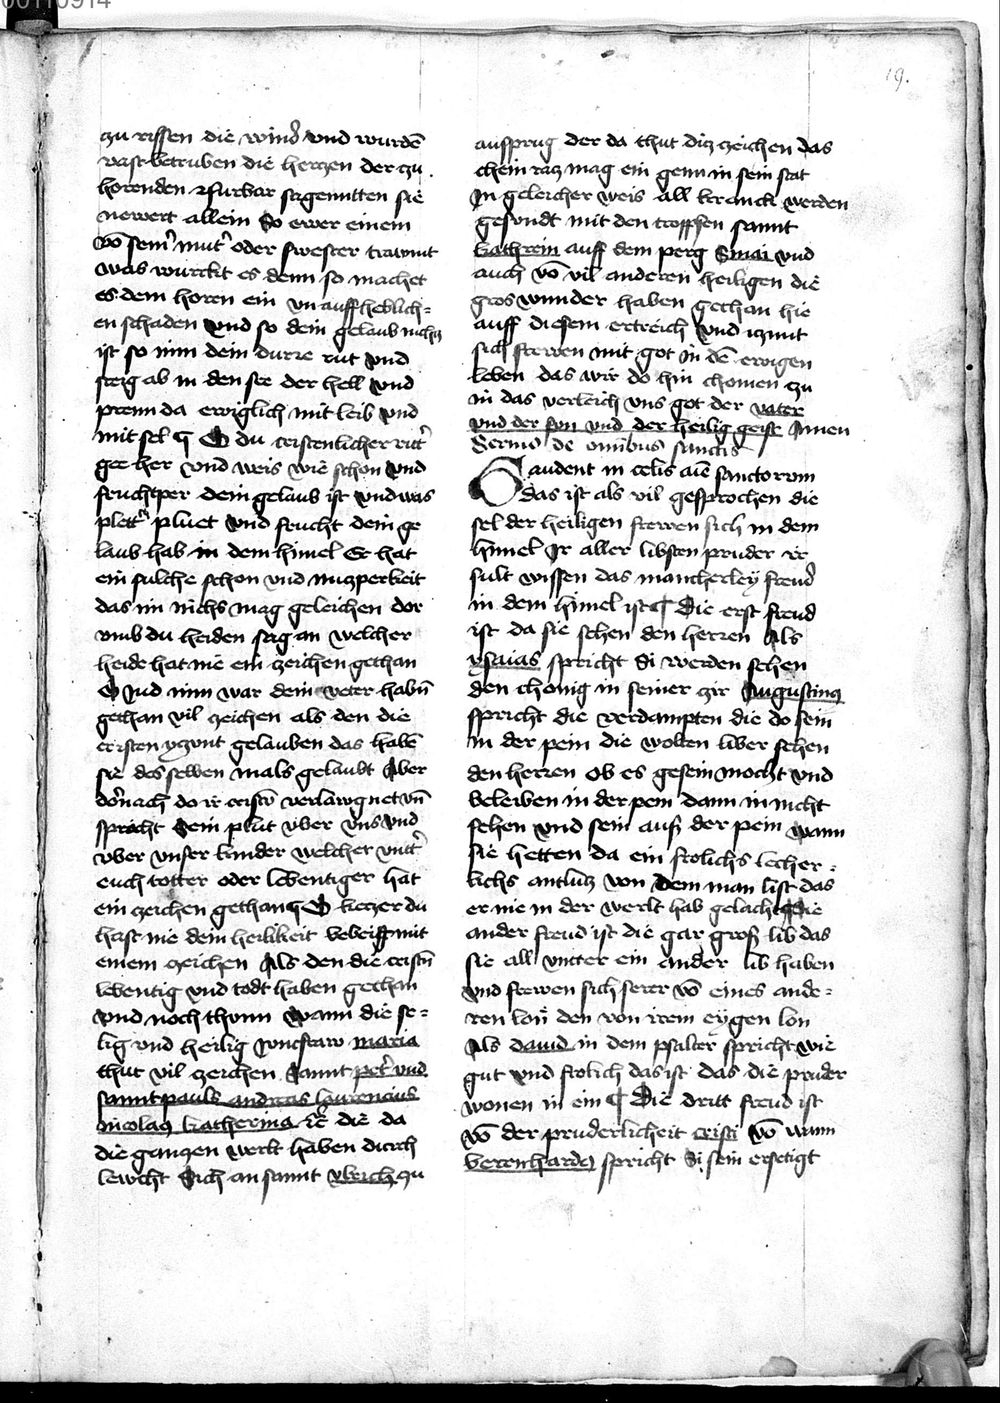 00110914
19.
zu rissen die wind̄ vnd wurdē
vast betruben die hertzen der zu
horenden furbar sagenutten sie
newert allein So ewer einem
vō sem̄ mut̄ oder swester trawmt
was wurckt es denn so machet
es dem horen ein vn auffheblich=
en schaden vnd so dein gelaub nichtz
ist so nim dein durre rut vnd
steig ab in den see der hell vnd
prenn da ewiglich mit leib vnd
mit sel ¶ O du cristenlicher rit̄
gee her vnd weis wie schon vnd
fruchtper dein gelaub ist vnd was
plett̄ pluet vnd frucht dein ge
laub hab in dem himel Er hat
ein sulche schon vnd nuczperkeit
das im nichs mag geleichen dor
vmb du heiden sag an welcher
heide hat nie ein zeichen gethan
O Jud nim war dein veter habn̄
gethan vil zeichen als den die
cristen yczunt gelauben das habē
sie des selben mals gelaubt Aber
dōnach do ir cristū verlawgnet vn̄
spracht Sein plut vber vns vnd
vber vnser kinder welcher vnt̄
euch totter oder lebentiger hat
ein zeichen gethan ¶ O keczer du
hast nie dein heilikeit beweist mit
einem zeichen Als den die cristn̄
lebentig vnd todt haben gethan
vnd noch thunn Wann die se=
lig vnd heilig Junckfraw maria
thut vil zeichen Sannt pet̄ vnd
sannt pauls andreas laurencius
nicolaus katherina ꝛc̄ die da
die gantzen werlt haben durch
lewcht Sich an sannt vlreich zu
ausprug der da thut diz zeichen das
chein raz mag ein genn in sein stat
In geleicher weis all kranck werden
gesundt mit den tropffen sannt
kathrein auff dem perg Sinai vnd
auch vō vil anderen heiligen die
gros wunder haben gethan hie
auff diesem ertreich vnd iczunt
sich frewen mit got in dē ewigen
leben das wir do hin chomen zu
in das verleich vns got der vater
vnd der sun vnd der heilig geist Amen
Sermo de omnibus sanctis
Gaudent in celis aīe sanctorum
das ist als vil gesprochen die
sel der heiligen frewen sich in dem
himel Ir aller libsten pruder ir
sult wissen das mancherley freud̄
in dem himel ist ¶ Die erst freud
ist da sie sehen den herren Als
ysaias spricht Si werden sehen
den chonig in seiner zir Augustinus
spricht die verdampten die do sein
in der pein die wolten liber sehen
den herren ob es gesein mocht vnd
beleiben in der pein dann in nicht
sehen vnd sein auß der pein wann
sie hetten da ein frolichs lecher=
lichs antlutz von dem man list das
er nie in der werlt hab gelacht ¶ Die
ander freud ist die gar groß lib das
sie all vnter ein ander lib haben
vnd frewen sich serer vō eines ande=
ren lon den von irem eygen lon
Als dauid in dem psalter spricht wie
gut vnd frolich das ist das die pruder
wonen in ein ¶ Die dritt freud ist
vō der pruderlicheit cristi vō wann
berenhardus spricht Si sein ersetigt